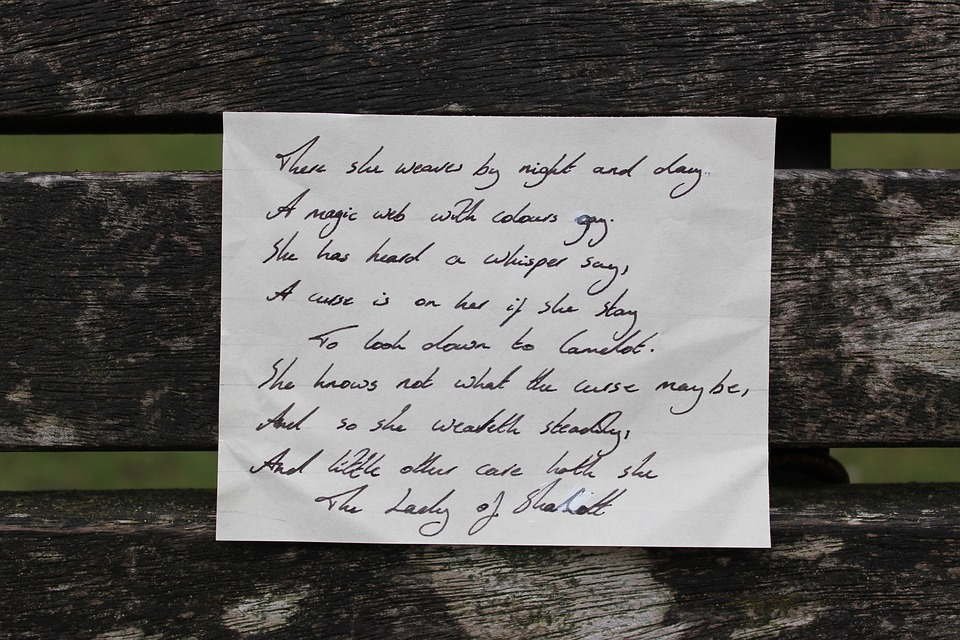 There she weaves by night and day
A magic web with colours gay.
She has heard a whisper say,
A curse is on her if she stay
To look down to Camelot.
She knows not what the curse may be,
And so she weaveth steadily,
And little other care hath she
The Lady of Shalott